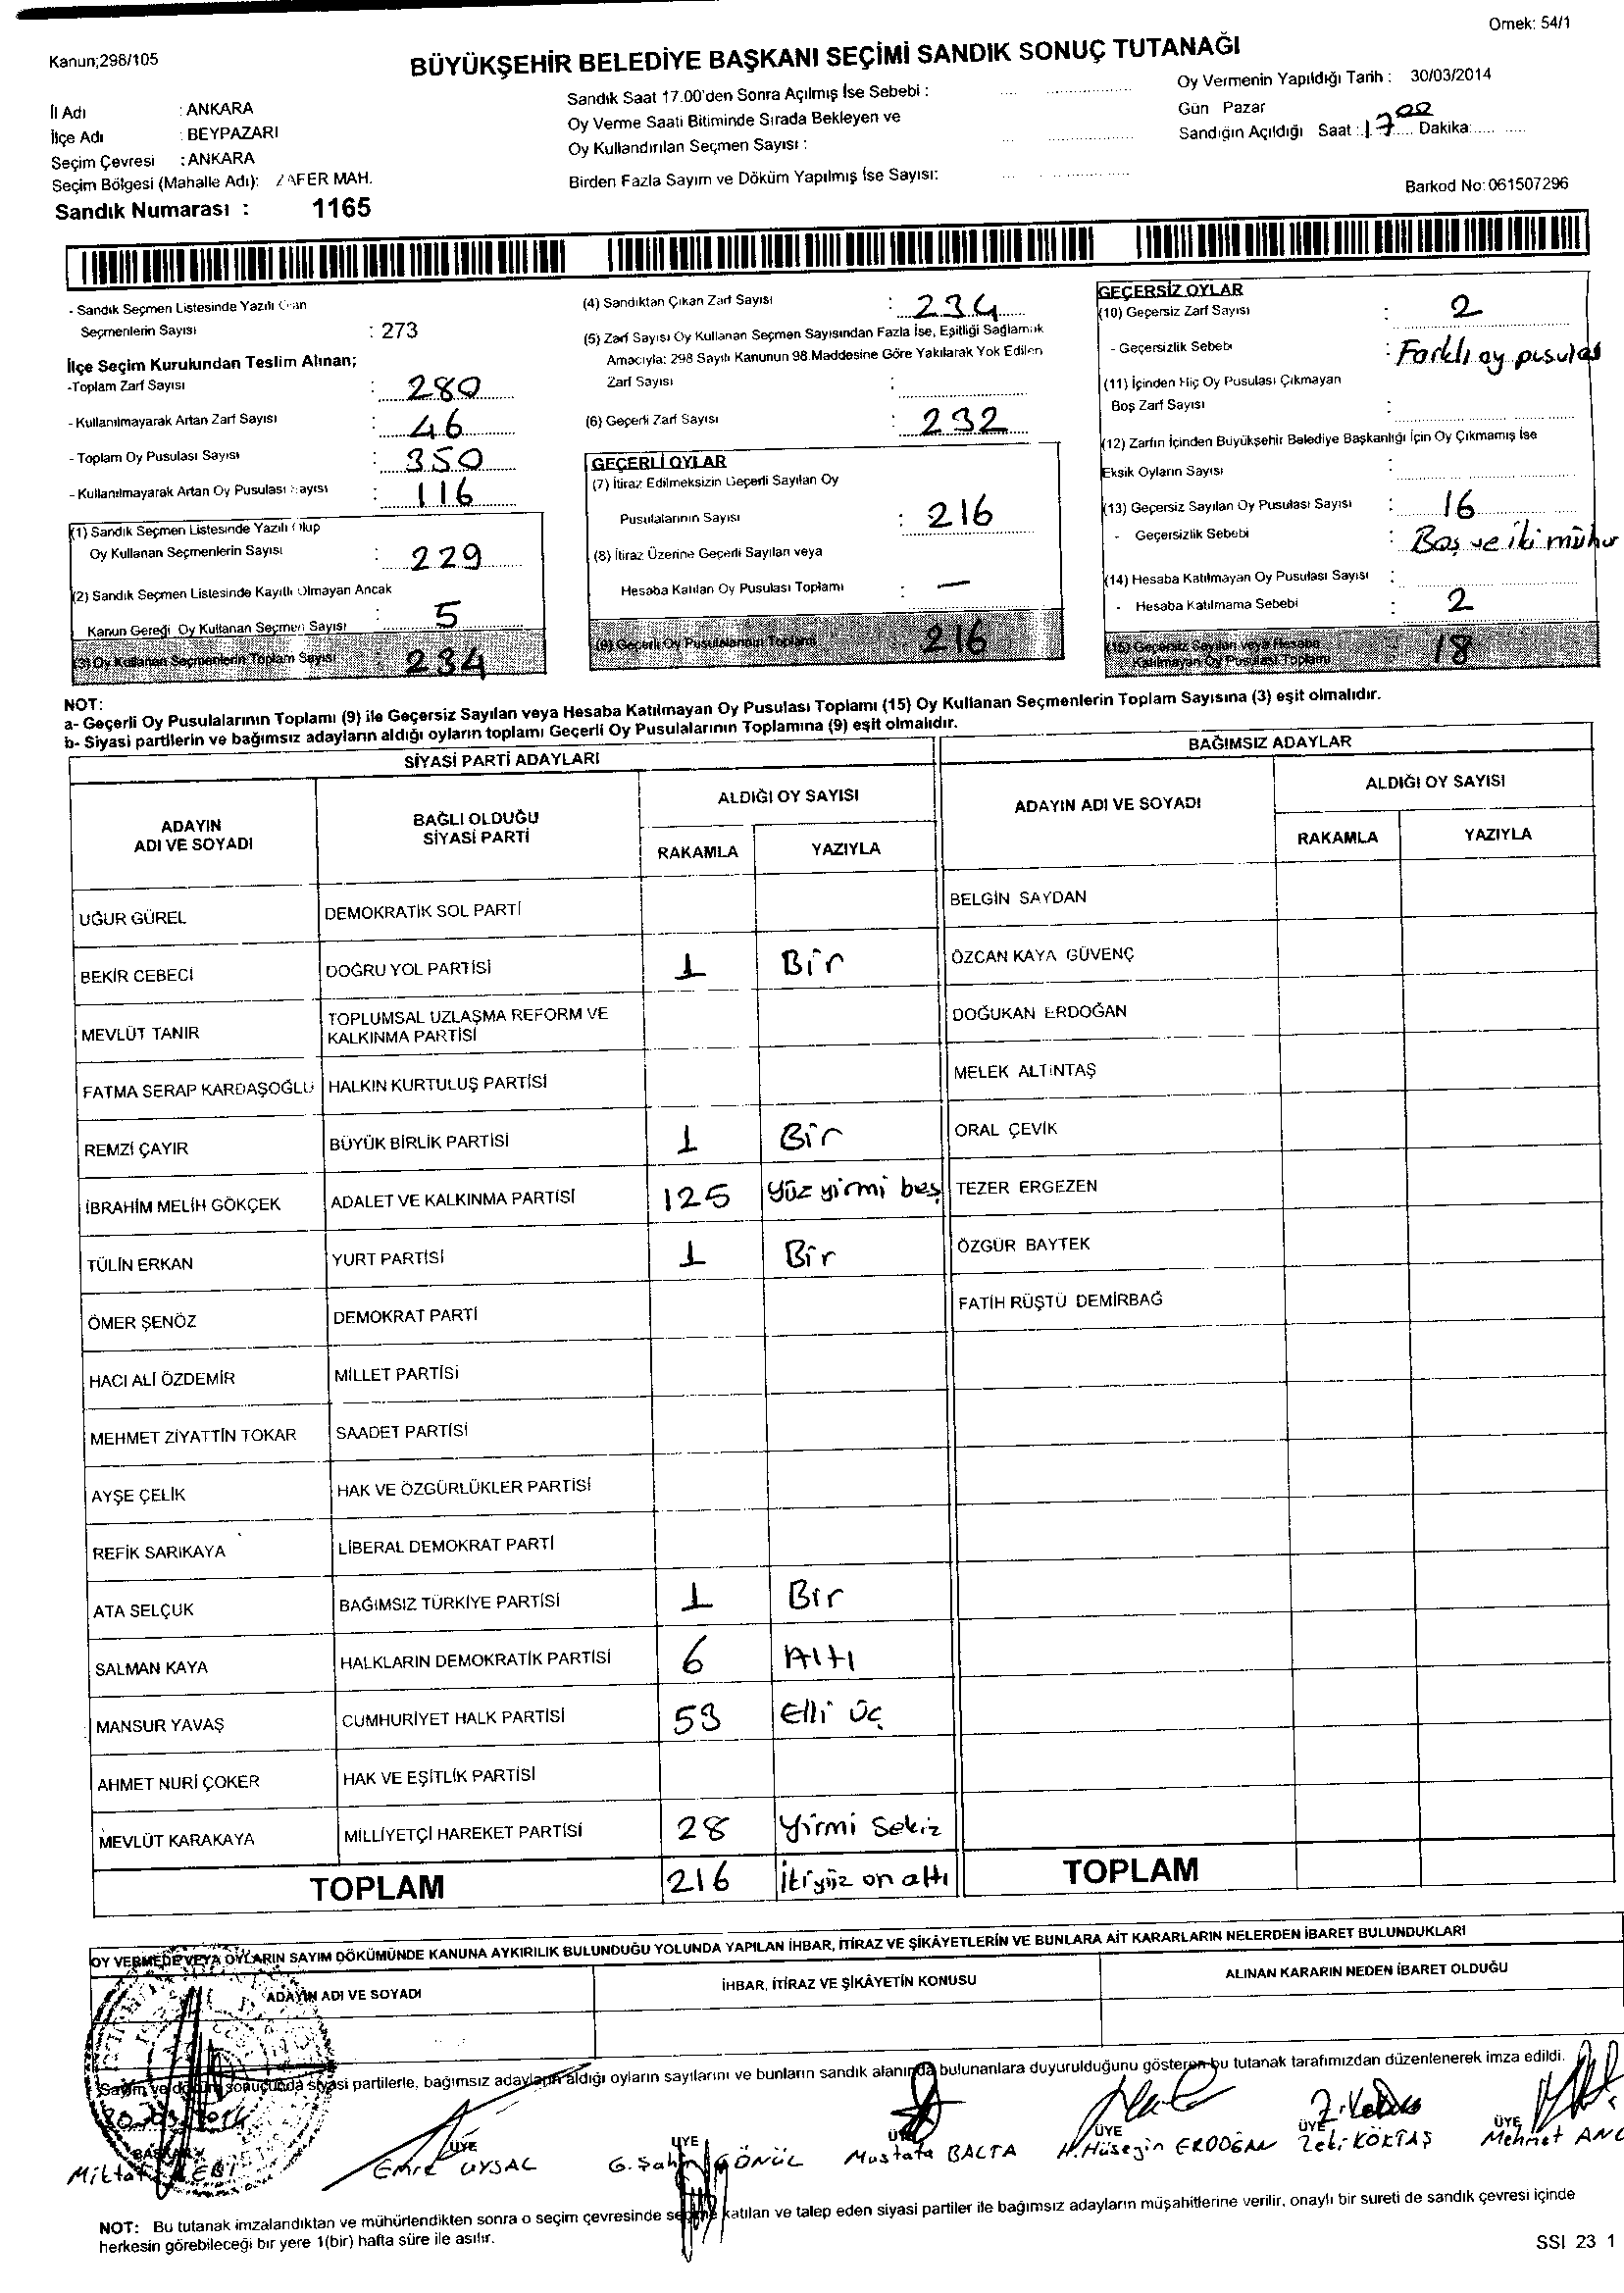 Örnek: 54/1
Kanun;298/105
BÜYÜKŞEHİR BELEDİYE BAŞKANI SEÇİMİ SANDIK SONUÇ TUTANAĞI
İl Adı : ANKARA
İlçe Adı : BEYPAZARI
Seçim Çevresi : ANKARA
Seçim Bölgesi (Mahalle Adı): ZAFER MAH.
Sandık Numarası : 1165
Sandık Saat 17.00'den Sonra Açılmış İse Sebebi :
Oy Verme Saati Bitiminde Sırada Bekleyen ve
Oy Kullandırılan Seçmen Sayısı :
Birden Fazla Sayım ve Döküm Yapılmış İse Sayısı:
Oy Vermenin Yapıldığı Tarih : 30/03/2014
Gün Pazar
Sandığın Açıldığı Saat : 17 00 Dakika:
Barkod No:061507296
- Sandık Seçmen Listesinde Yazılı Olan
Seçmenlerin Sayısı : 273
İlçe Seçim Kurulundan Teslim Alınan;
-Toplam Zarf Sayısı : 280
- Kullanılmayarak Artan Zarf Sayısı : 46
- Toplam Oy Pusulası Sayısı : 350
- Kullanılmayarak Artan Oy Pusulası Sayısı : 116
(1) Sandık Seçmen Listesinde Yazılı Olup
Oy Kullanan Seçmenlerin Sayısı : 229
(2) Sandık Seçmen Listesinde Kayıtlı Olmayan Ancak
Kanun Gereği Oy Kullanan Seçmen Sayısı : 5
(3) Oy Kullanan Seçmenlerin Toplam Sayısı : 234
(4) Sandıktan Çıkan Zarf Sayısı : 234
(5) Zarf Sayısı Oy Kullanan Seçmen Sayısından Fazla İse, Eşitliği Sağlamak
Amacıyla: 298 Sayılı Kanunun 98.Maddesine Göre Yakılarak Yok Edilen
Zarf Sayısı :
(6) Geçerli Zarf Sayısı : 232
GEÇERLİ OYLAR
(7) İtiraz Edilmeksizin Geçerli Sayılan Oy
Pusulalarının Sayısı : 216
(8) İtiraz Üzerine Geçerli Sayılan veya
Hesaba Katılan Oy Pusulası Toplamı : —
(9) Geçerli Oy Pusulalarının Toplamı 216
GEÇERSİZ OYLAR
(10) Geçersiz Zarf Sayısı : 2
- Geçersizlik Sebebi : Farklı oy pusulas
(11) İçinden Hiç Oy Pusulası Çıkmayan
Boş Zarf Sayısı :
(12) Zarfın İçinden Büyükşehir Belediye Başkanlığı İçin Oy Çıkmamış İse
Eksik Oyların Sayısı :
(13) Geçersiz Sayılan Oy Pusulası Sayısı : 16
- Geçersizlik Sebebi : Boş ve iki mühur
(14) Hesaba Katılmayan Oy Pusulası Sayısı :
- Hesaba Katılmama Sebebi : 2
(15) Geçersiz Sayılan veya Hesaba
Katılmayan Oy Pusulası Toplamı 18
NOT:
a- Geçerli Oy Pusulalarının Toplamı (9) ile Geçersiz Sayılan veya Hesaba Katılmayan Oy Pusulası Toplamı (15) Oy Kullanan Seçmenlerin Toplam Sayısına (3) eşit olmalıdır.
b- Siyasi partilerin ve bağımsız adayların aldığı oyların toplamı Geçerli Oy Pusulalarının Toplamına (9) eşit olmalıdır.
SİYASİ PARTİ ADAYLARI
BAĞIMSIZ ADAYLAR
ADAYIN
ADI VE SOYADI
BAĞLI OLDUĞU
SİYASİ PARTİ
ALDIĞI OY SAYISI
RAKAMLA YAZIYLA
ADAYIN ADI VE SOYADI
ALDIĞI OY SAYISI
RAKAMLA YAZIYLA
UĞUR GÜREL DEMOKRATİK SOL PARTİ BELGİN SAYDAN
BEKİR CEBECİ DOĞRU YOL PARTİSİ 1 Bir ÖZCAN KAYA GÜVENÇ
MEVLÜT TANIR TOPLUMSAL UZLAŞMA REFORM VE KALKINMA PARTİSİ DOĞUKAN ERDOĞAN
FATMA SERAP KARDAŞOĞLU HALKIN KURTULUŞ PARTİSİ MELEK ALTINTAŞ
REMZİ ÇAYIR BÜYÜK BİRLİK PARTİSİ 1 Bir ORAL ÇEVİK
İBRAHİM MELİH GÖKÇEK ADALET VE KALKINMA PARTİSİ 125 Yüz yirmi beş TEZER ERGEZEN
TÜLİN ERKAN YURT PARTİSİ 1 Bir ÖZGÜR BAYTEK
ÖMER ŞENÖZ DEMOKRAT PARTİ FATİH RÜŞTÜ DEMİRBAĞ
HACI ALİ ÖZDEMİR MİLLET PARTİSİ
MEHMET ZİYATTİN TOKAR SAADET PARTİSİ
AYŞE ÇELİK HAK VE ÖZGÜRLÜKLER PARTİSİ
REFİK SARIKAYA LİBERAL DEMOKRAT PARTİ
ATA SELÇUK BAĞIMSIZ TÜRKİYE PARTİSİ 1 Bir
SALMAN KAYA HALKLARIN DEMOKRATİK PARTİSİ 6 Altı
MANSUR YAVAŞ CUMHURİYET HALK PARTİSİ 53 Elli üç
AHMET NURİ ÇOKER HAK VE EŞİTLİK PARTİSİ
MEVLÜT KARAKAYA MİLLİYETÇİ HAREKET PARTİSİ 28 Yirmi Sekiz
TOPLAM 216 İkiyüz on altı TOPLAM
OY VERMEDE VEYA OYLARIN SAYIM DÖKÜMÜNDE KANUNA AYKIRILIK BULUNDUĞU YOLUNDA YAPILAN İHBAR, İTİRAZ VE ŞİKÂYETLERİN VE BUNLARA AİT KARARLARIN NELERDEN İBARET BULUNDUKLARI
ADAYIN ADI VE SOYADI İHBAR, İTİRAZ VE ŞİKÂYETİN KONUSU ALINAN KARARIN NEDEN İBARET OLDUĞU
Sayım ve döküm sonucunda siyasi partilerle, bağımsız adayların aldığı oyların sayılarını ve bunların sandık alanında bulunanlara duyurulduğunu gösteren bu tutanak tarafımızdan düzenlenerek imza edildi.
BAŞKAN ÜYE ÜYE ÜYE ÜYE ÜYE ÜYE
Emre UYSAL G. Şahin GÖNÜL Mustafa BALTA H.Hüseyin ERDOĞAN Zeki KÖKTAŞ Mehmet
NOT: Bu tutanak imzalandıktan ve mühürlendikten sonra o seçim çevresinde seçime katılan ve talep eden siyasi partiler ile bağımsız adayların müşahitlerine verilir, onaylı bir sureti de sandık çevresi içinde
herkesin görebileceği bir yere 1(bir) hafta süre ile asılır.
SSI 23 1